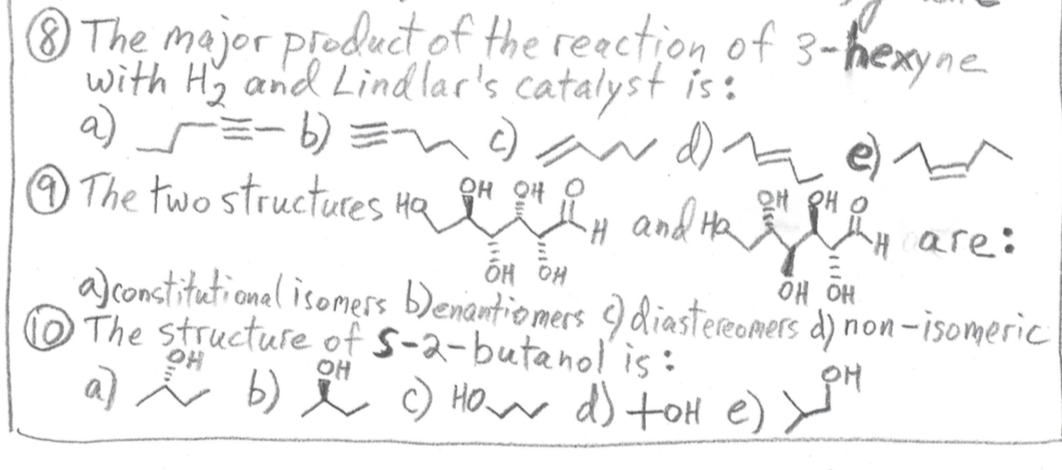 ⑧ The major product of the reaction of 3-hexyne
with H₂ and Lindlar's catalyst is:
a) b) c) d) e)
⑨ The two structures HO OH OH O H OH OH and HO OH OH O H OH OH are:
a) constitutional isomers b) enantiomers c) diastereomers d) non-isomeric
⑩ The structure of S-2-butanol is:
a) OH b) OH c) HO d) OH e) OH